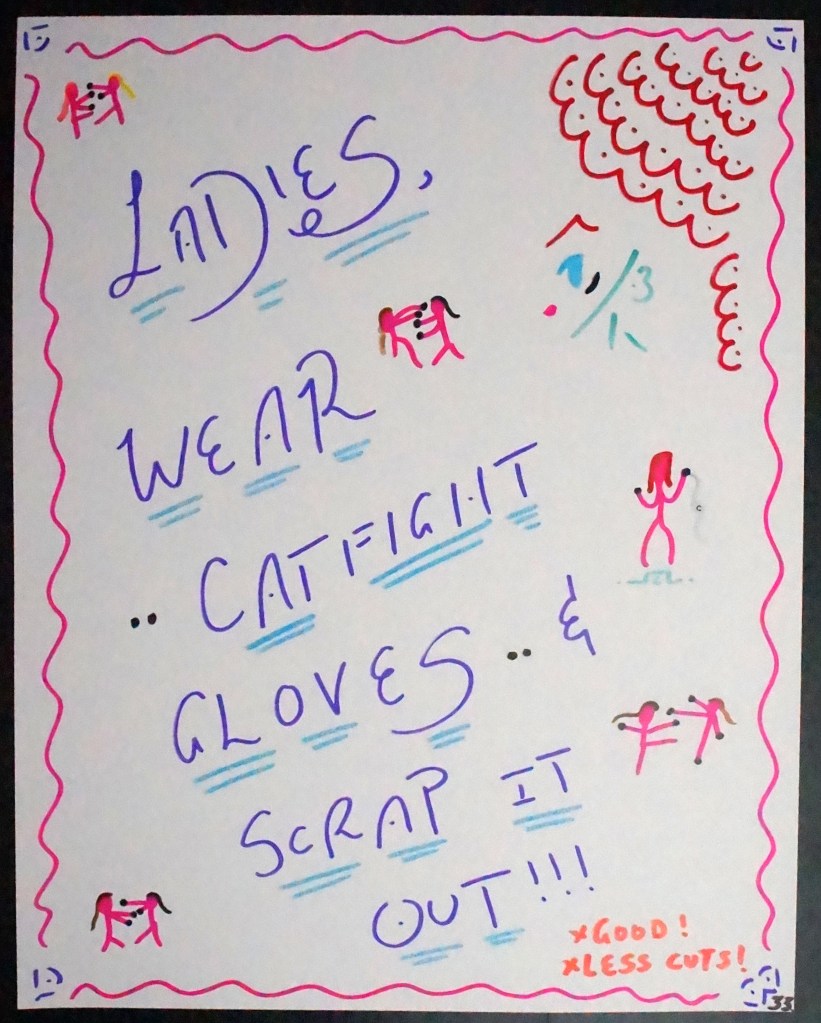 LADIES,
3
WEAR
.. CATFIGHT
GLOVES .. &
SCRAP IT
OUT!!!
xGOOD!
xLESS CUTS!
33